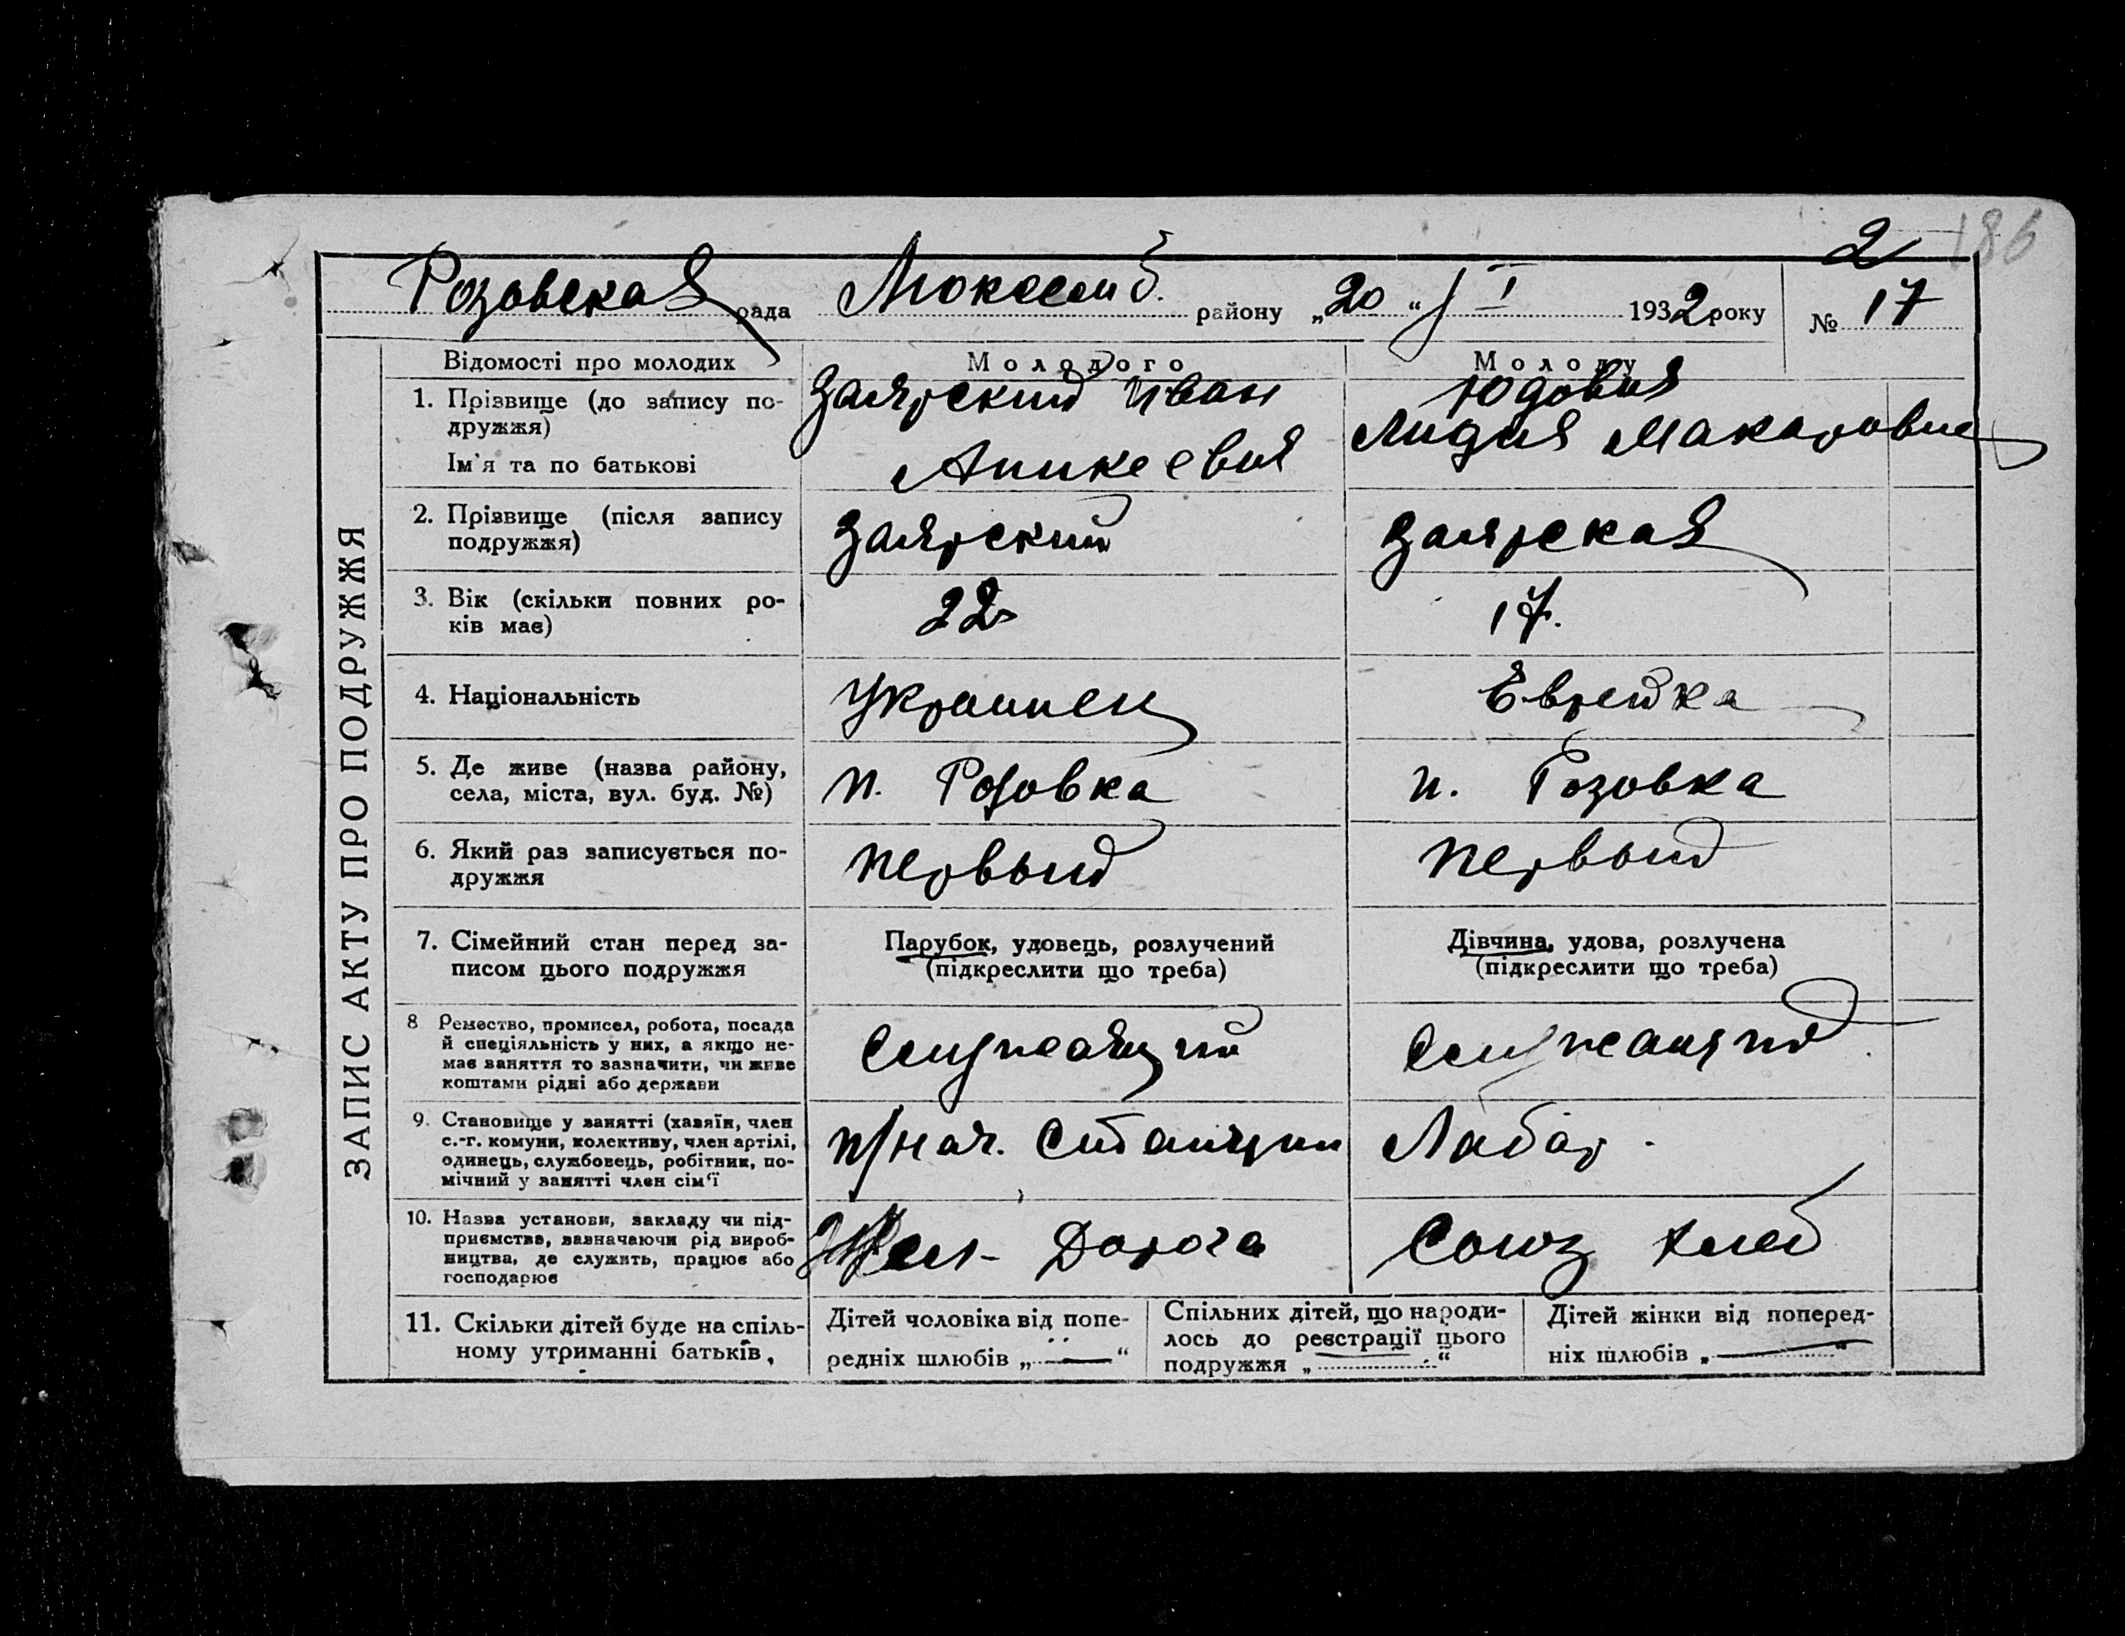 2 186
Розовская рада Люксемб. району „20“ I 1932 року № 17
ЗАПИС АКТУ ПРО ПОДРУЖЖЯ
Відомості про молодих
Молодого
Молоду
1. Прізвище (до запису по-
дружжя)
Ім'я та по батькові
Заярский Иван
Аникеевич
Юдович
Лидия Макаровна
2. Прізвище (після запису
подружжя)
Заярский
Заярская
3. Вік (скільки повних ро-
ків має)
22
17.
4. Національність
Украинец
Еврейка
5. Де живе (назва району,
села, міста, вул. буд. №)
п. Розовка
п. Розовка
6. Який раз записується по-
дружжя
первый
первый
7. Сімейний стан перед за-
писом цього подружжя
Парубок, удовець, розлучений
(підкреслити що треба)
Дівчина, удова, розлучена
(підкреслити що треба)
8 Ремество, промисел, робота, посада
й спеціяльність у них, а якщо не-
має заняття то зазначити, чи живе
коштами рідні або держави
Служащий
Служащий
9. Становище у занятті (хазяїн, член
с.-г. комуни, колективу, член артілі,
одинець, службовець, робітник, по-
мічний у занятті член сім'ї
п/нач. Станции
Лабор.
10. Назва установи, закладу чи під-
приємства, зазначаючи рід вироб-
ництва, де служить, працює або
господарює
Жел- Дорога
Союз хлеб
11. Скільки дітей буде на спіль-
ному утриманні батьків,
Дітей чоловіка від попе-
редніх шлюбів „—“
Спільних дітей, що народи-
лось до реєстрації цього
подружжя „ “
Дітей жінки від поперед-
ніх шлюбів „—“